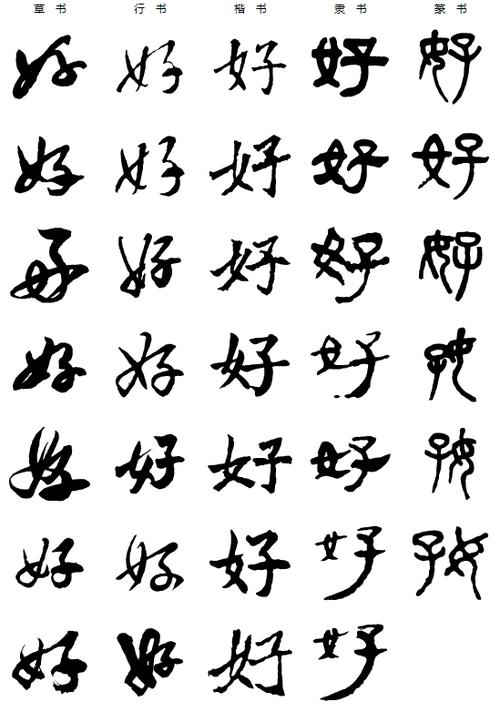 草书 行书 楷书 隶书 篆书
好 好 好 好 好
好 好 好 好 好
好 好 好 好 好
好 好 好 好 好
好 好 好 好 好
好 好 好 好 好
好 好 好 好